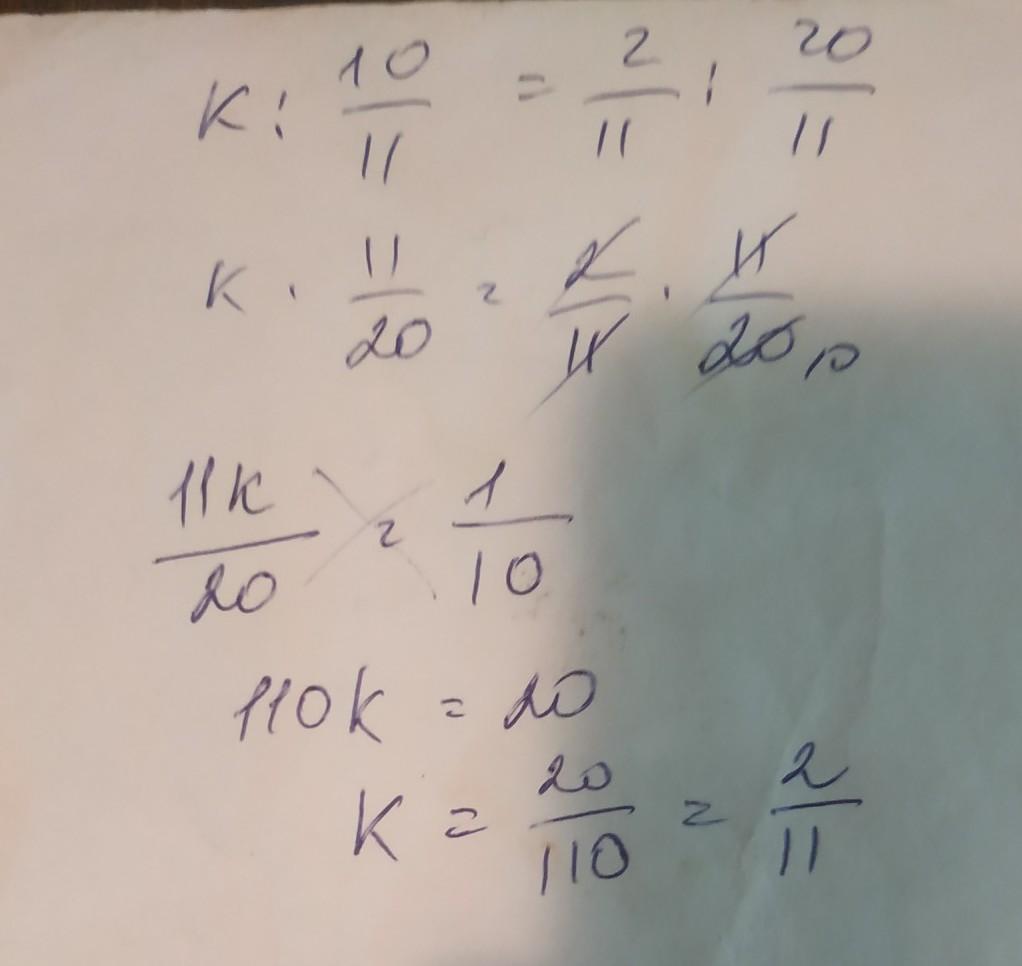 K : 10/11 = 2/11 : 20/11
K · 11/20 = 2/11 · 11/20 10
11k/20 = 1/10
110k = 20
K = 20/110 = 2/11